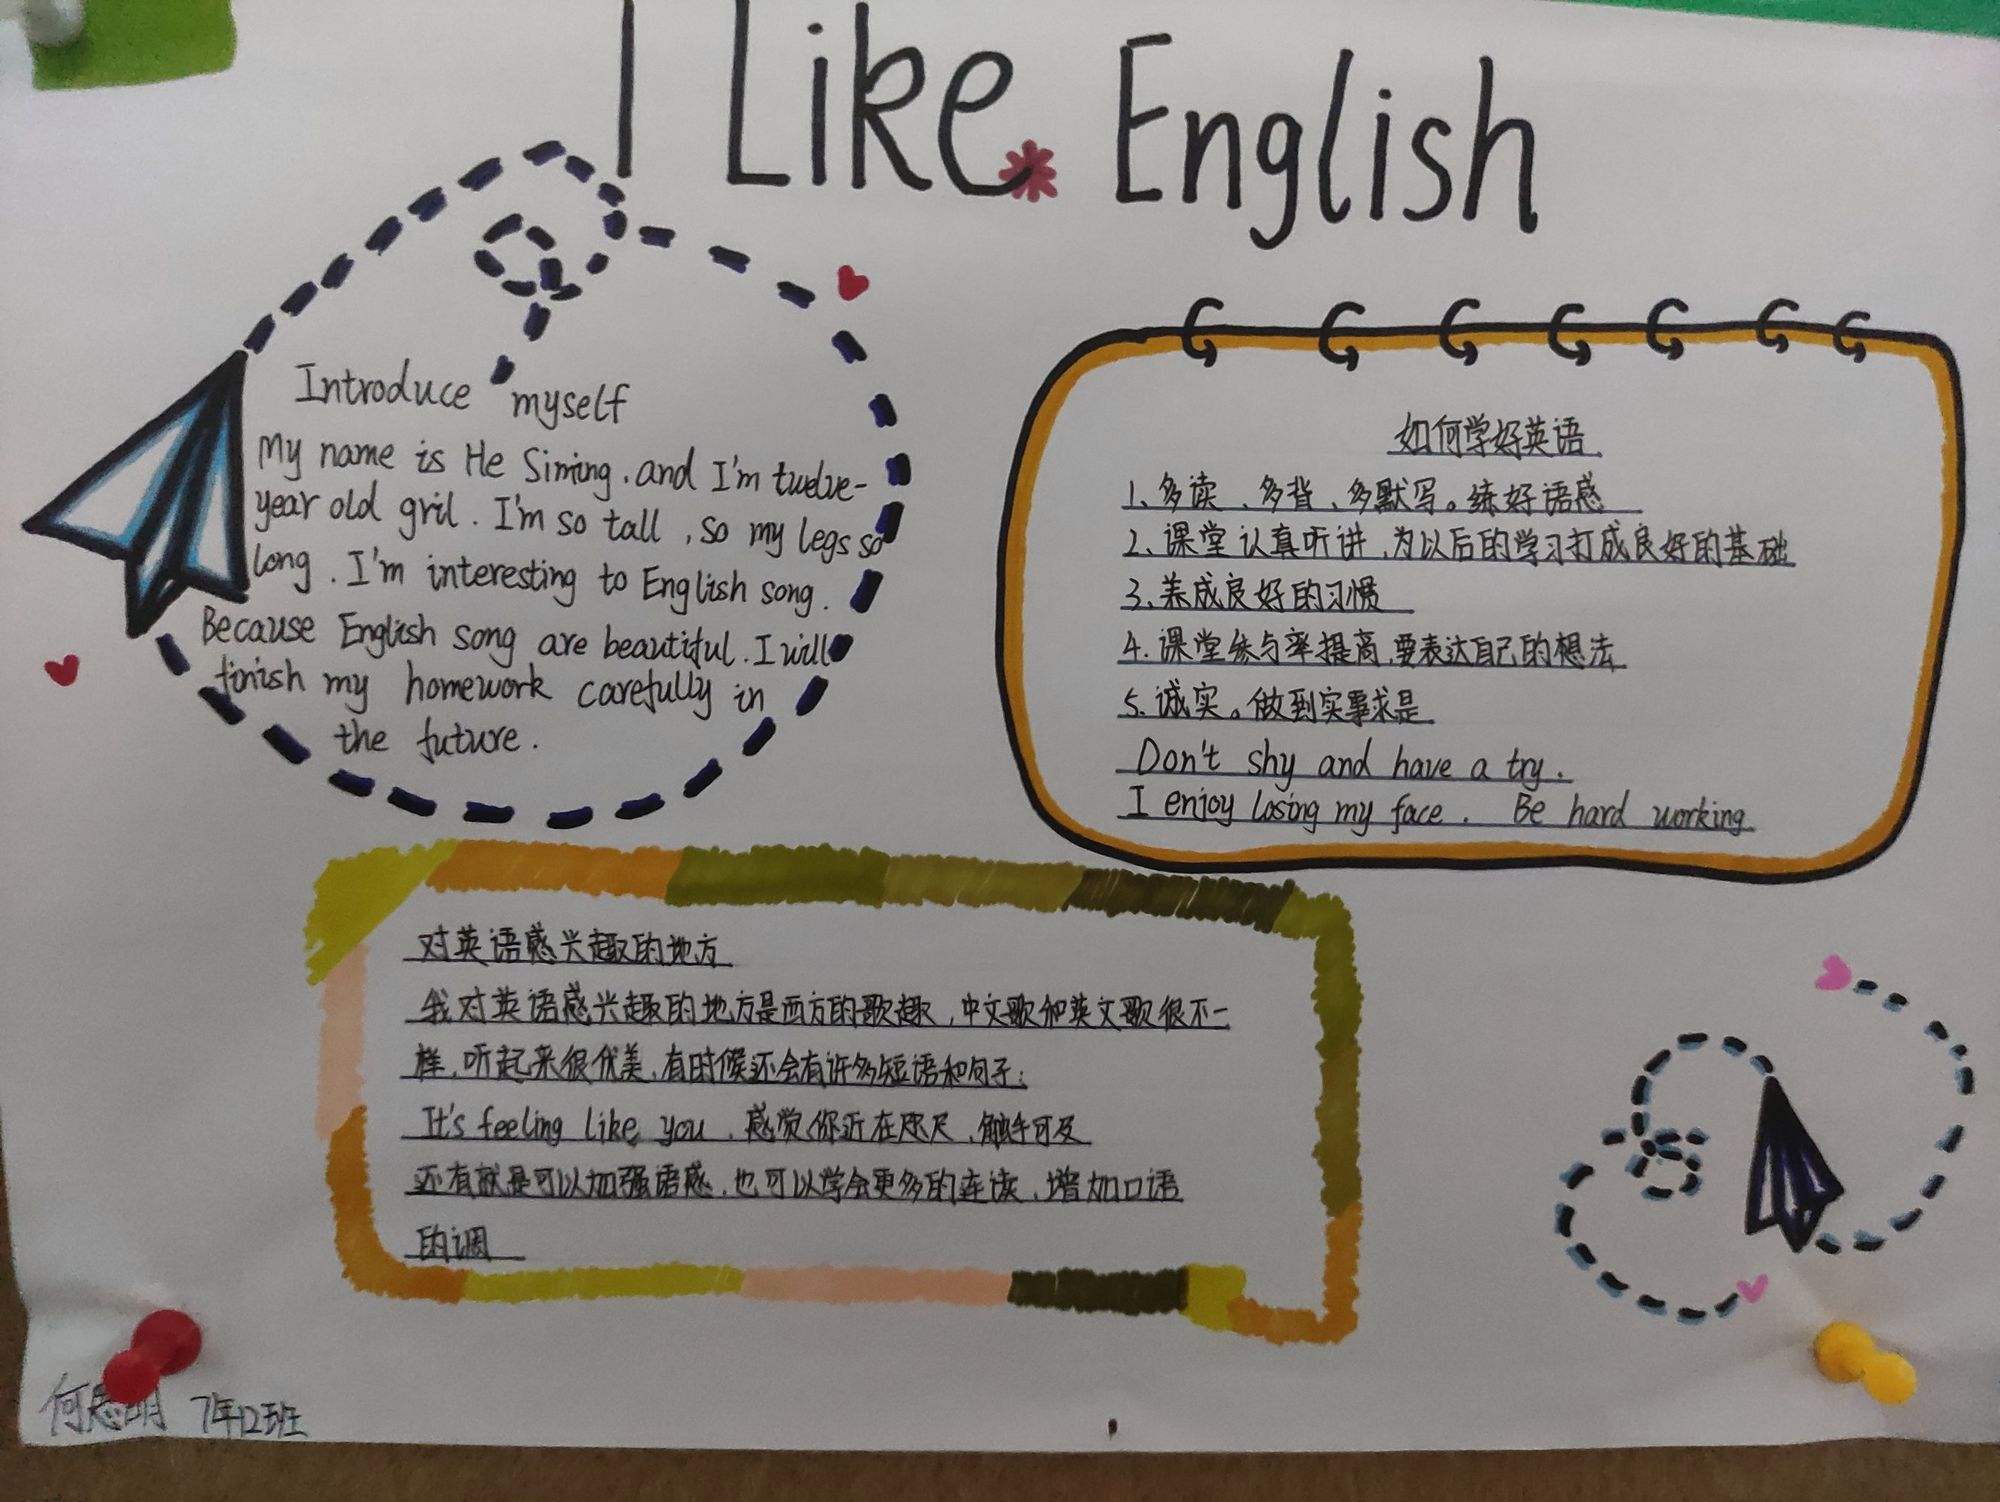 I Like English
Introduce myself
My name is He Siming. and I'm twelve-
year old gril. I'm so tall, so my legs so
long. I'm interesting to English song.
Because English song are beautiful. I will
finish my homework carefully in
the future.
如何学好英语
1、多读、多背、多默写。练好语感
2、课堂认真听讲,为以后的学习打成良好的基础
3、养成良好的习惯
4.课堂参与率提高,要表达自己的想法
5.诚实。做到实事求是
Don't shy and have a try.
I enjoy losing my face. Be hard working
对英语感兴趣的地方
我对英语感兴趣的地方是西方的歌趣,中文歌和英文歌很不一
样,听起来很优美,有时候还会有许多短语和句子:
It's feeling like you,感觉你近在咫尺,触手可及
还有就是可以加强语感,也可以学会更多的连读,增加口语
的调
何思明 7年12班